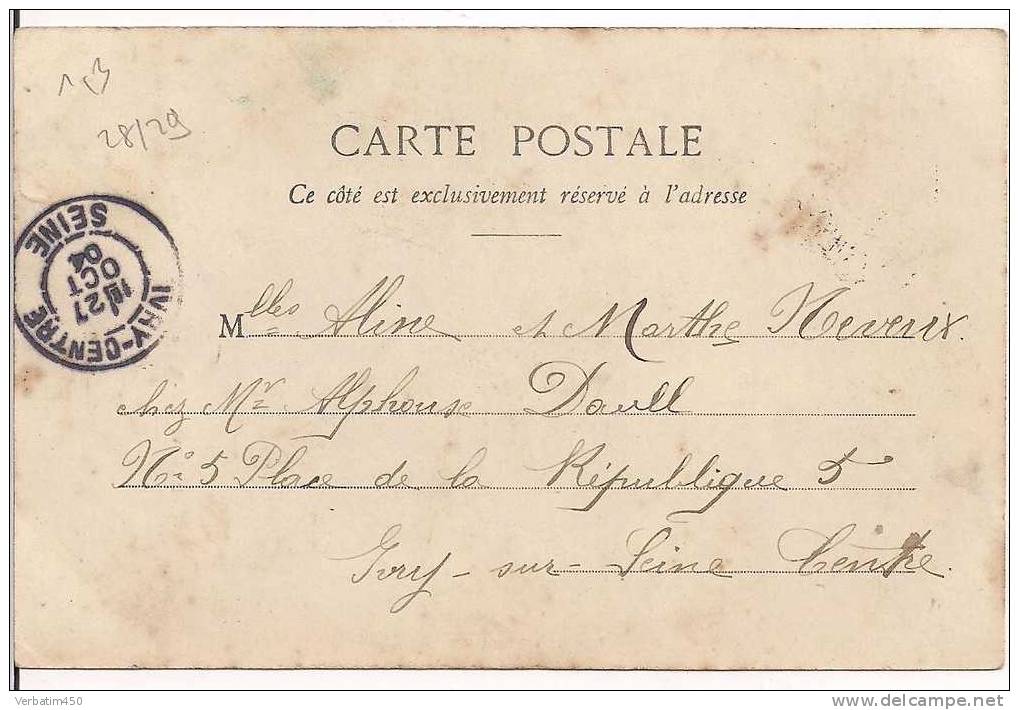 28/29
CARTE POSTALE
Ce côté est exclusivement réservé à l'adresse
IVRY-CENTRE
27
OCT
04
SEINE
Mlles Aline et Marthe Neveux.
chez Mr Alphonse Daull
No 5 Place de la République 5
Ivry-sur-Seine Centre.
Verbatim450
delcampe.net